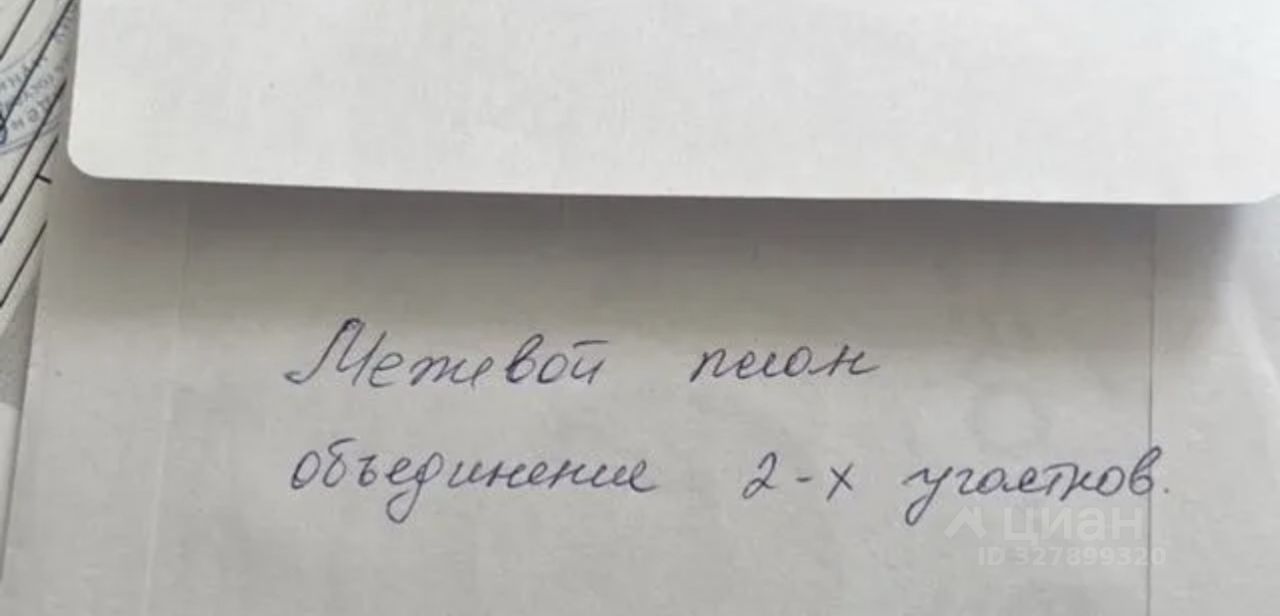 Межевой план
объединение 2-х участков.
циан
ID 327899320